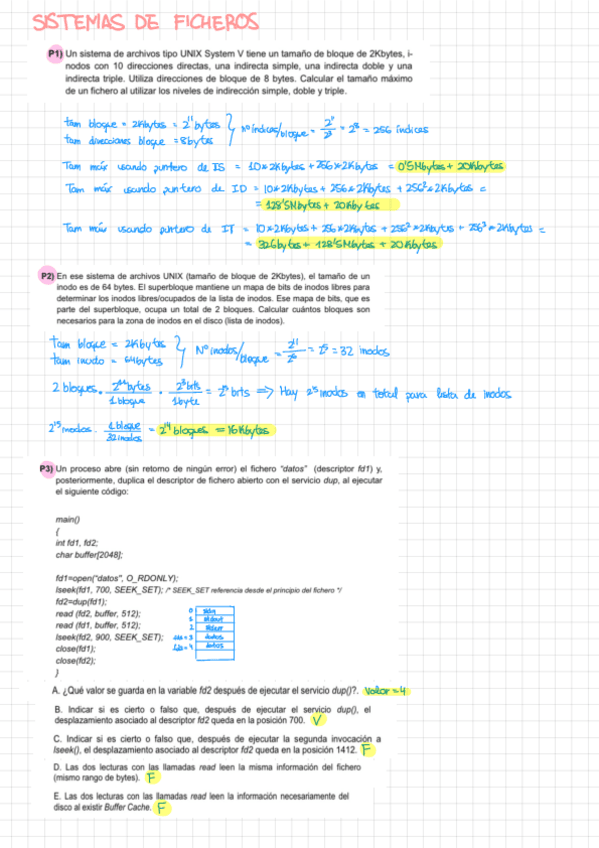 SISTEMAS DE FICHEROS
P1) Un sistema de archivos tipo UNIX System V tiene un tamaño de bloque de 2Kbytes, i-
nodos con 10 direcciones directas, una indirecta simple, una indirecta doble y una
indirecta triple. Utiliza direcciones de bloque de 8 bytes. Calcular el tamaño máximo
de un fichero al utilizar los niveles de indirección simple, doble y triple.
tam bloque = 2Kbytes = 2^11 bytes
tam direcciones bloque = 8 bytes
Nº índices/bloque = 2^11/2^3 = 2^8 = 256 índices
Tam máx usando puntero de IS = 10*2Kbytes + 256*2Kbytes = 0'5Mbytes + 20Kbytes
Tam máx usando puntero de ID = 10*2Kbytes + 256*2Kbytes + 256^2*2Kbytes =
= 128'5Mbytes + 20Kbytes
Tam máx usando puntero de IT = 10*2Kbytes + 256*2Kbytes + 256^2*2Kbytes + 256^3*2Kbytes =
= 32Gbytes + 128'5Mbytes + 20Kbytes
P2) En ese sistema de archivos UNIX (tamaño de bloque de 2Kbytes), el tamaño de un
inodo es de 64 bytes. El superbloque mantiene un mapa de bits de inodos libres para
determinar los inodos libres/ocupados de la lista de inodos. Ese mapa de bits, que es
parte del superbloque, ocupa un total de 2 bloques. Calcular cuántos bloques son
necesarios para la zona de inodos en el disco (lista de inodos).
tam bloque = 2Kbytes
tam inodo = 64bytes
Nº inodos/bloque = 2^11/2^6 = 2^5 = 32 inodos
2 bloques · 2^11 bytes/1 bloque · 2^3 bits/1 byte = 2^15 bits ⇒ Hay 2^15 inodos en total para lista de inodos
2^15 inodos · 1 bloque/32 inodos = 2^14 bloques = 16Kbytes
P3) Un proceso abre (sin retorno de ningún error) el fichero "datos" (descriptor fd1) y,
posteriormente, duplica el descriptor de fichero abierto con el servicio dup, al ejecutar
el siguiente código:
main()
{
int fd1, fd2;
char buffer[2048];
fd1=open("datos", O_RDONLY);
lseek(fd1, 700, SEEK_SET); /* SEEK_SET referencia desde el principio del fichero */
fd2=dup(fd1);
read (fd2, buffer, 512);
read (fd1, buffer, 512);
lseek(fd2, 900, SEEK_SET);
close(fd1);
close(fd2);
}
0 stdin
1 stdout
2 stderr
fd1 = 3 datos
fd2 = 4 datos
A. ¿Qué valor se guarda en la variable fd2 después de ejecutar el servicio dup()?. Valor = 4
B. Indicar si es cierto o falso que, después de ejecutar el servicio dup(), el
desplazamiento asociado al descriptor fd2 queda en la posición 700. V
C. Indicar si es cierto o falso que, después de ejecutar la segunda invocación a
lseek(), el desplazamiento asociado al descriptor fd2 queda en la posición 1412. F
D. Las dos lecturas con las llamadas read leen la misma información del fichero
(mismo rango de bytes). F
E. Las dos lecturas con las llamadas read leen la información necesariamente del
disco al existir Buffer Cache. F